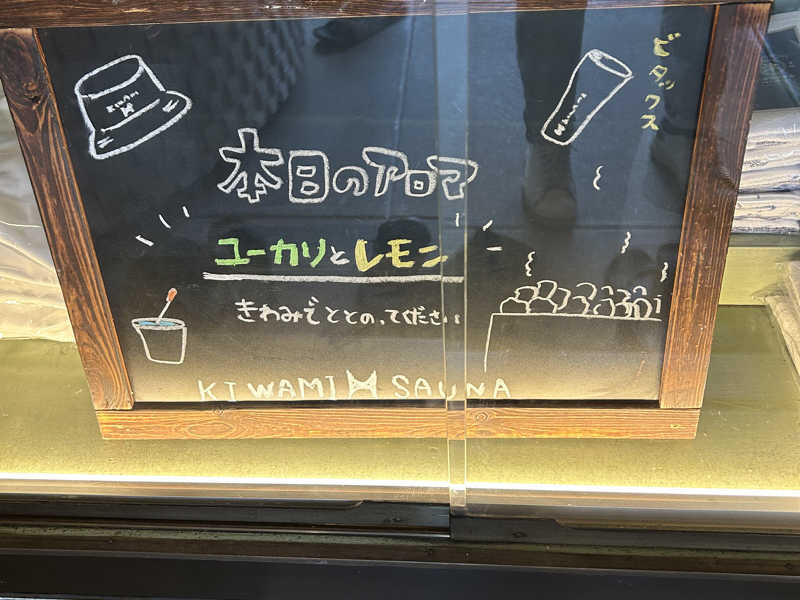 ビタックス
KIWAMI
本日のアロマ
ユーカリとレモン
きわみでととのってください
KIWAMI SAUNA